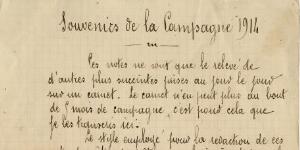 Souvenirs de la Campagne 1914
Ces notes ne sont que le relevé de
d'autres plus succintes prises au jour le jour
sur un carnet. Le carnet n'en peut plus au bout
de 9 mois de campagne, c'est pour cela que
je les transcris ici.
Le style employé pour la rédaction de ces